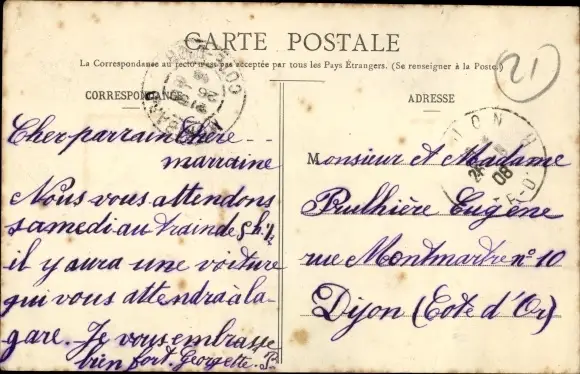 CARTE POSTALE
La Correspondance au recto n'est pas acceptée par tous les Pays Étrangers. (Se renseigner à la Poste.)
21
CORRESPONDANCE
Cher parrain Chère
marraine
Nous vous attendons
samedi au train de 5h ½
il y aura une voiture
qui vous attendra à la
gare. Je vous embrasse
bien fort. Georgette. P.
ADRESSE
Monsieur et Madame
Prulhière Eugène
rue Montmartre n° 10
Dijon (Cote d'Or)
DIJON
08